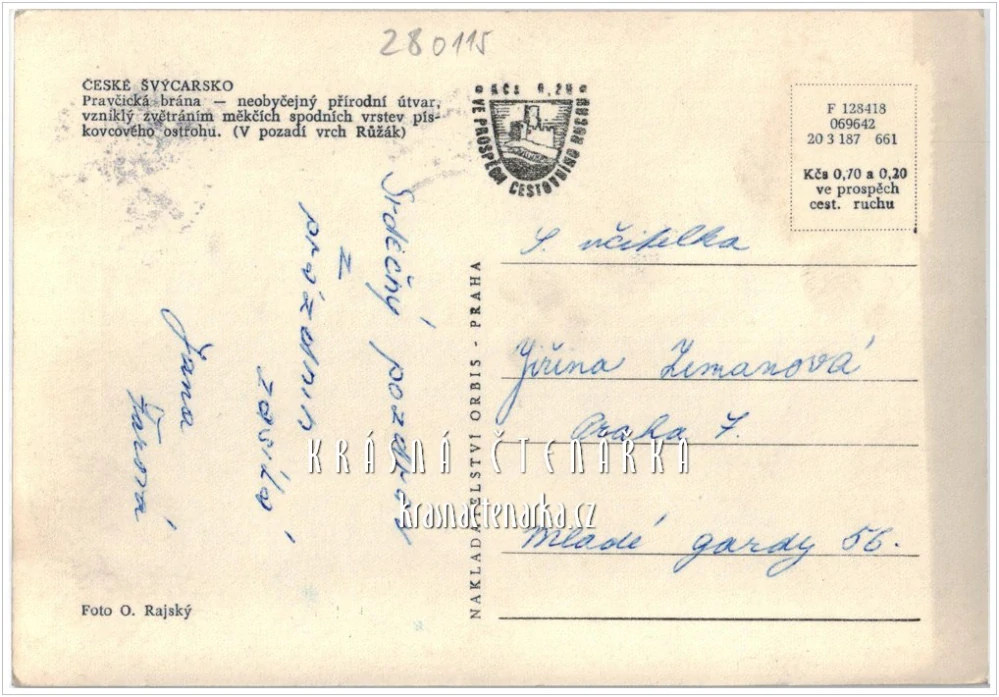 280115
ČESKÉ ŠVÝCARSKO
Pravčická brána — neobyčejný přírodní útvar,
vzniklý zvětráním měkčích spodních vrstev pís-
kovcového ostrohu. (V pozadí vrch Růžák)
Kčs 0,20
VE PROSPĚCH CESTOVNÍHO RUCHU
F 128418
069642
20 3 187 661
Kčs 0,70 a 0,20
ve prospěch
cest. ruchu
Srdečný pozdrav
z
prázdnin
zasílá
Jana
S. učitelka
Jiřina Zemanová
Praha 7.
Mladé gardy 56.
NAKLADATELSTVÍ ORBIS - PRAHA
KRÁSNÁ ČTENÁŘKA
krasnactenarka.cz
Foto O. Rajský